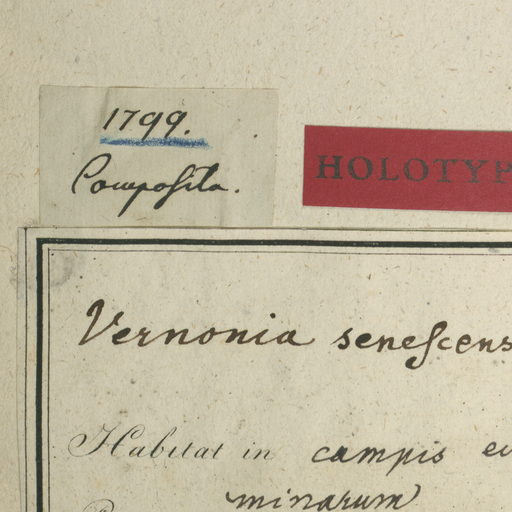 1799.
Composita.
HOLOTYP
Vernonia senescens
Habitat in campis
minarum